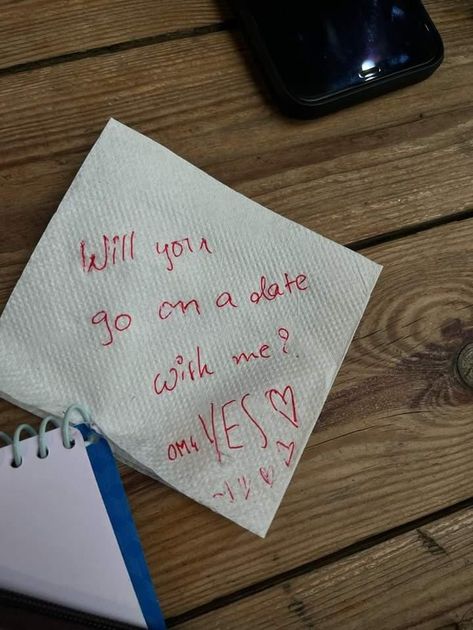 Will you
go on a date
with me?
OMG YES ♡